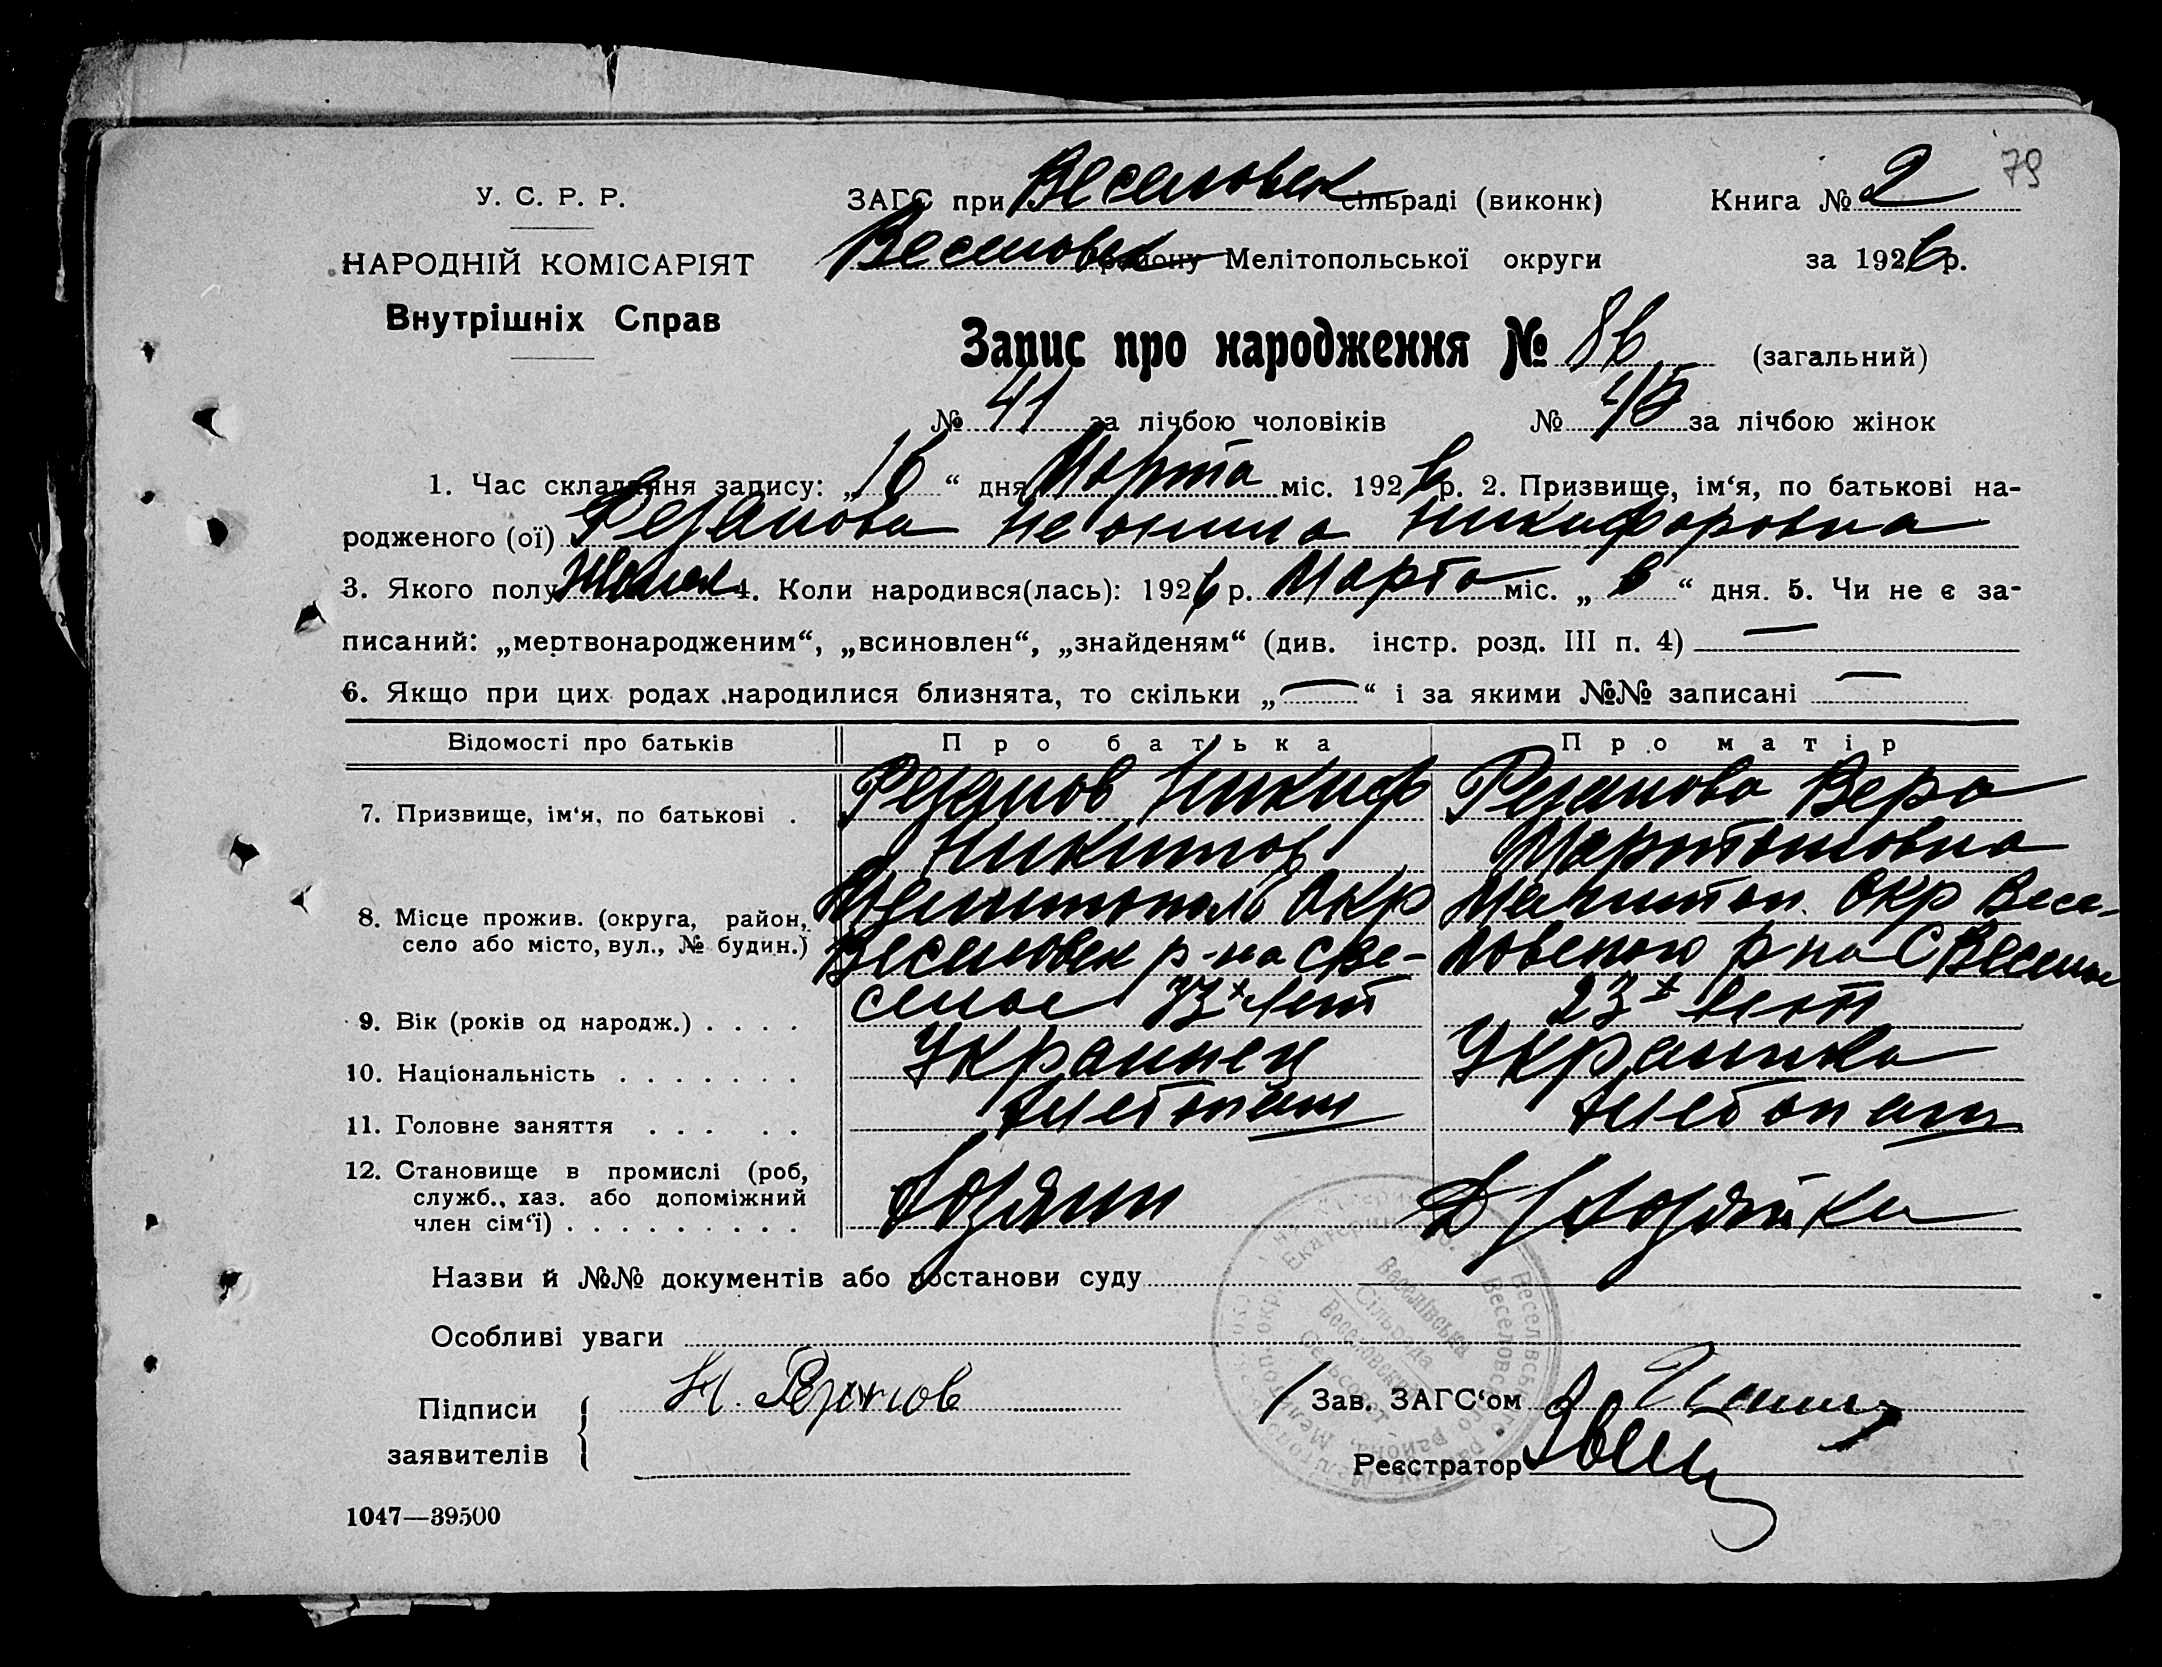 79
У. С. Р. Р.
ЗАГС при Веселовск сільраді (виконк) Книга № 2
НАРОДНІЙ КОМІСАРІЯТ
Веселовск району Мелітопольської округи за 1926 р.
Внутрішніх Справ
Запис про народження № 86 (загальний)
№ 41 за лічбою чоловіків № 45 за лічбою жінок
1. Час складання запису: „16“ дня Марта міс. 1926 р. 2. Призвище, ім‘я, по батькові на-
родженого (ої) Резанова Неонила Никифоровна
3. Якого полу Женск 4. Коли народився(лась): 1926 р. Марта міс. „6“ дня. 5. Чи не є за-
писаний: „мертвонародженим“, „всиновлен“, „знайденям“ (див. інстр. розд. III п. 4) —
6. Якщо при цих родах народилися близнята, то скільки „—“ і за якими №№ записані —
Відомості про батьків Про батька Про матір
7. Призвище, ім‘я, по батькові . Резанов Никиф Резанова Вера
Никитов Мартыновна
8. Місце прожив. (округа, район, Мелитополь Окр Мелитоп. Окр Весе-
село або місто, вул., № будин.) Веселовск р-на с Ве- ловского р на С Веселое
9. Вік (років од народж.) . . . . селое 33х лет 23х лет
10. Національність . . . . . . . Украинец Украинка
11. Головне заняття . . . . . Хлебопаш Хлебопаш
12. Становище в промислі (роб,
служб., хаз. або допоміжний
член сім‘ї) . . . . . . . . . Хозяин Д/Хозяйка
Назви й №№ документів або постанови суду
Особливі уваги
Підписи
заявителів
Н. Резанов
Зав. ЗАГС‘ом
Реєстратор
Веселівська
Сільрада
Веселовский
Сельсовет
1047—39500